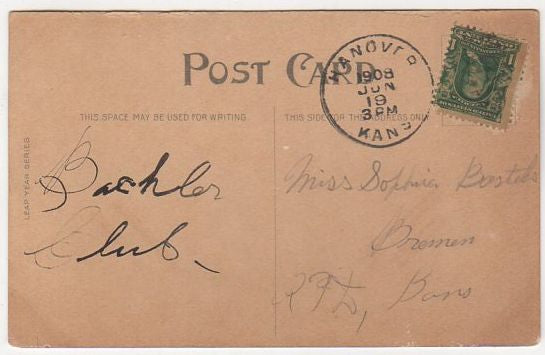 POST CARD
HANOVER
1908
JUN
19
3 PM
KANS
1
1
THIS SPACE MAY BE USED FOR WRITING.
THIS SIDE FOR THE ADDRESS ONLY.
LEAP YEAR SERIES
Bachler
Club.
Miss Sophia
Bremen
RFD, Kans